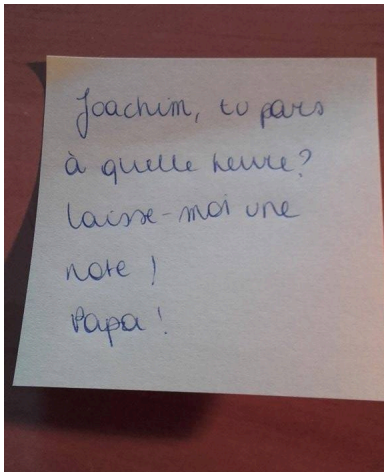 Joachim, tu pars
à quelle heure?
Laisse-moi une
note !
Papa !